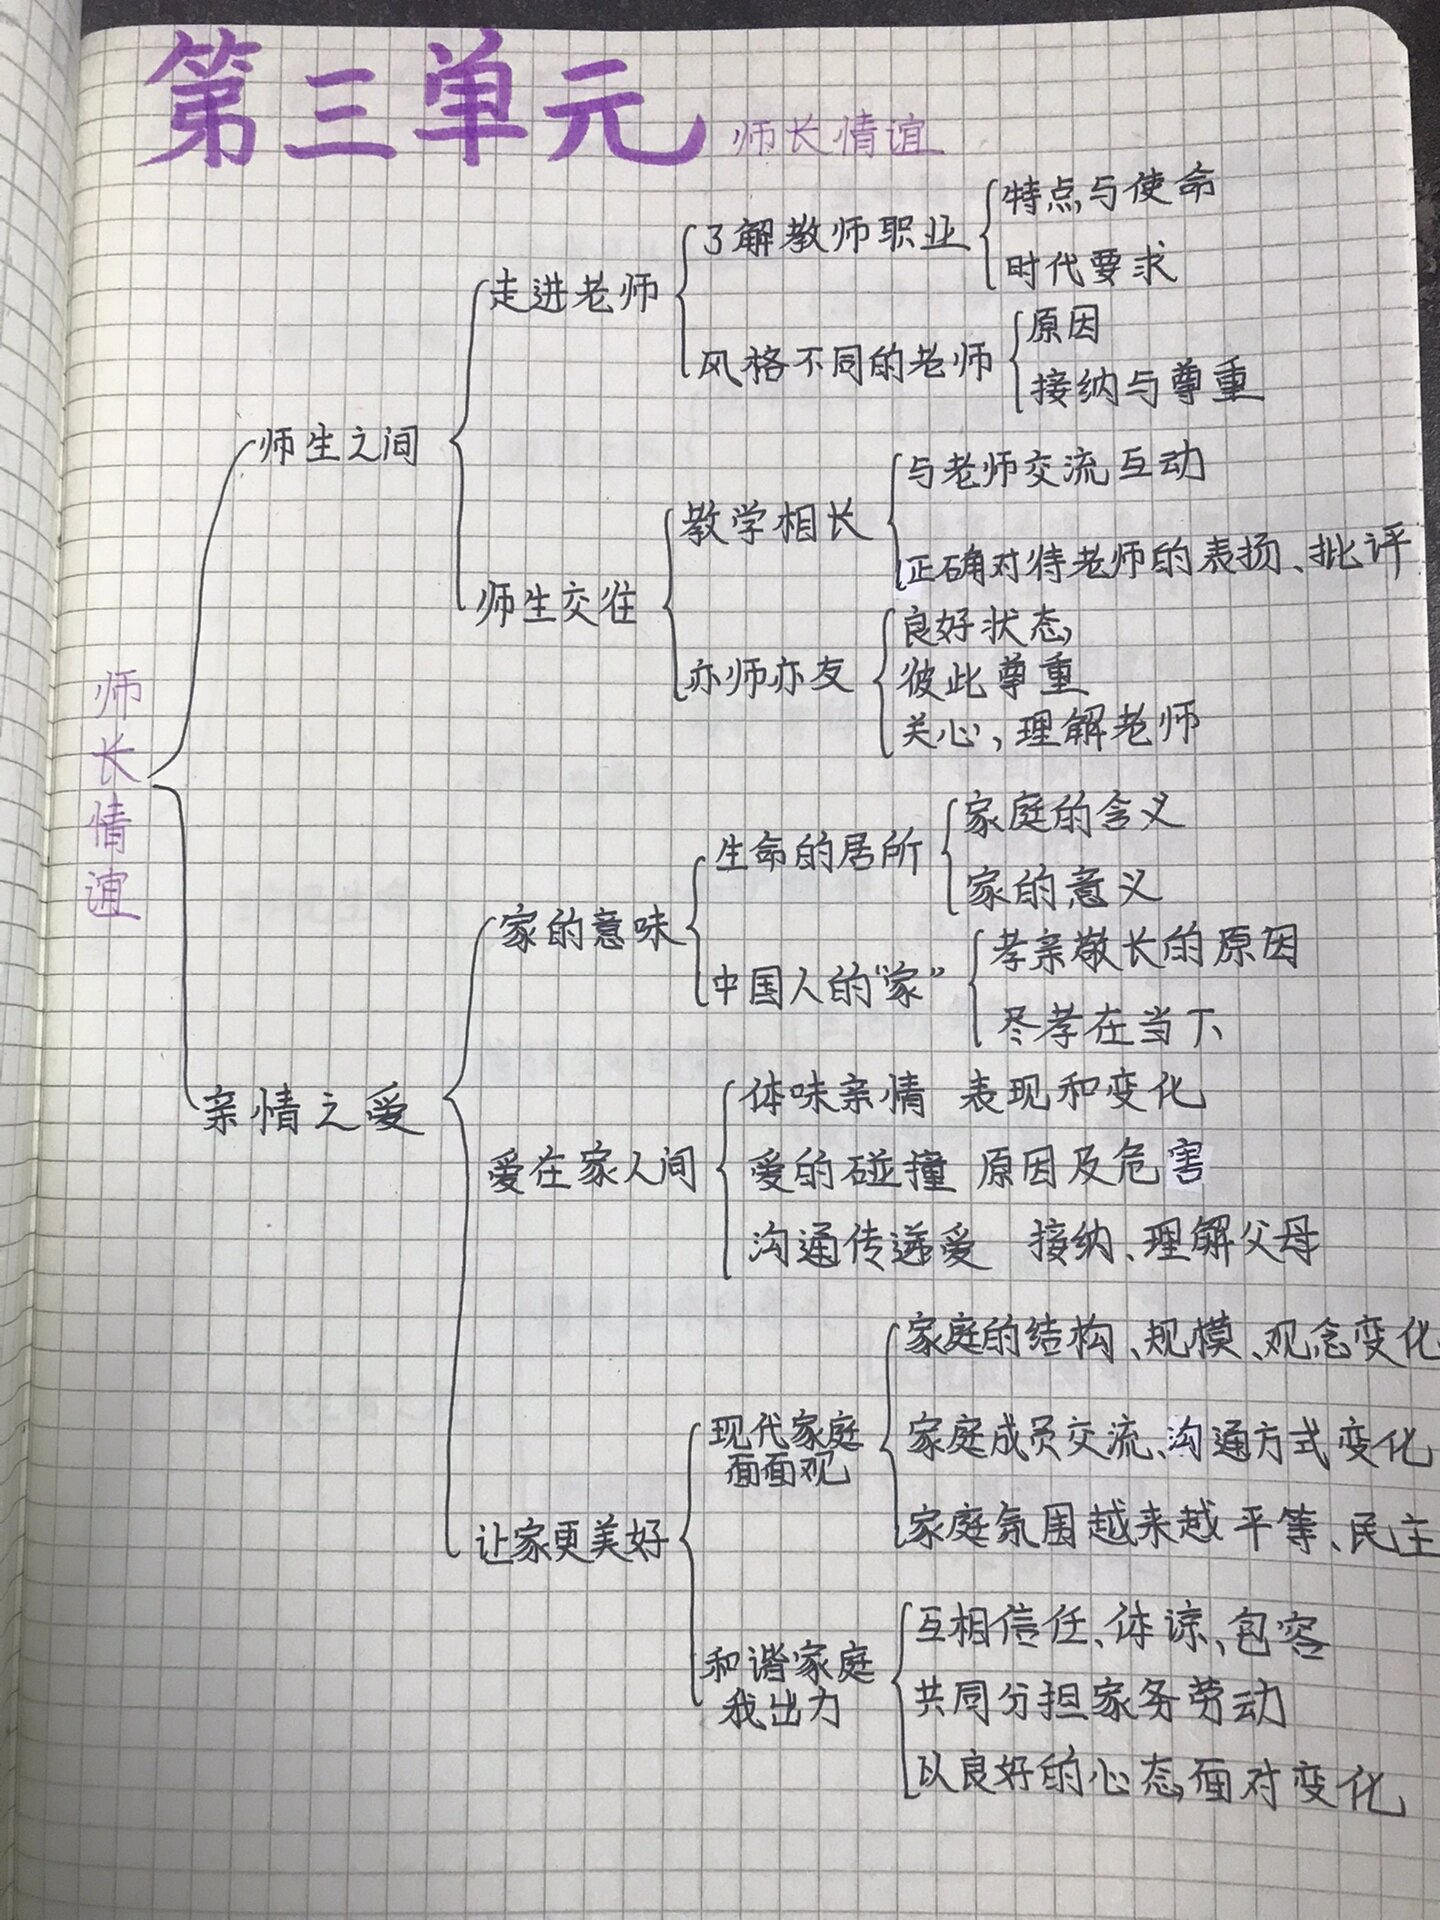 第三单元 师长情谊
师长情谊
师生之间
走进老师
了解教师职业
特点与使命
时代要求
风格不同的老师
原因
接纳与尊重
师生交往
教学相长
与老师交流互动
正确对待老师的表扬、批评
亦师亦友
良好状态,
彼此尊重
关心,理解老师
亲情之爱
家的意味
生命的居所
家庭的含义
家的意义
中国人的“家”
孝亲敬长的原因
尽孝在当下
爱在家人间
体味亲情 表现和变化
爱的碰撞 原因及危害
沟通传递爱 接纳、理解父母
让家更美好
现代家庭
面面观
家庭的结构、规模、观念变化
家庭成员交流、沟通方式变化
家庭氛围越来越平等、民主
和谐家庭
我出力
互相信任、体谅、包容
共同分担家务劳动
以良好的心态面对变化